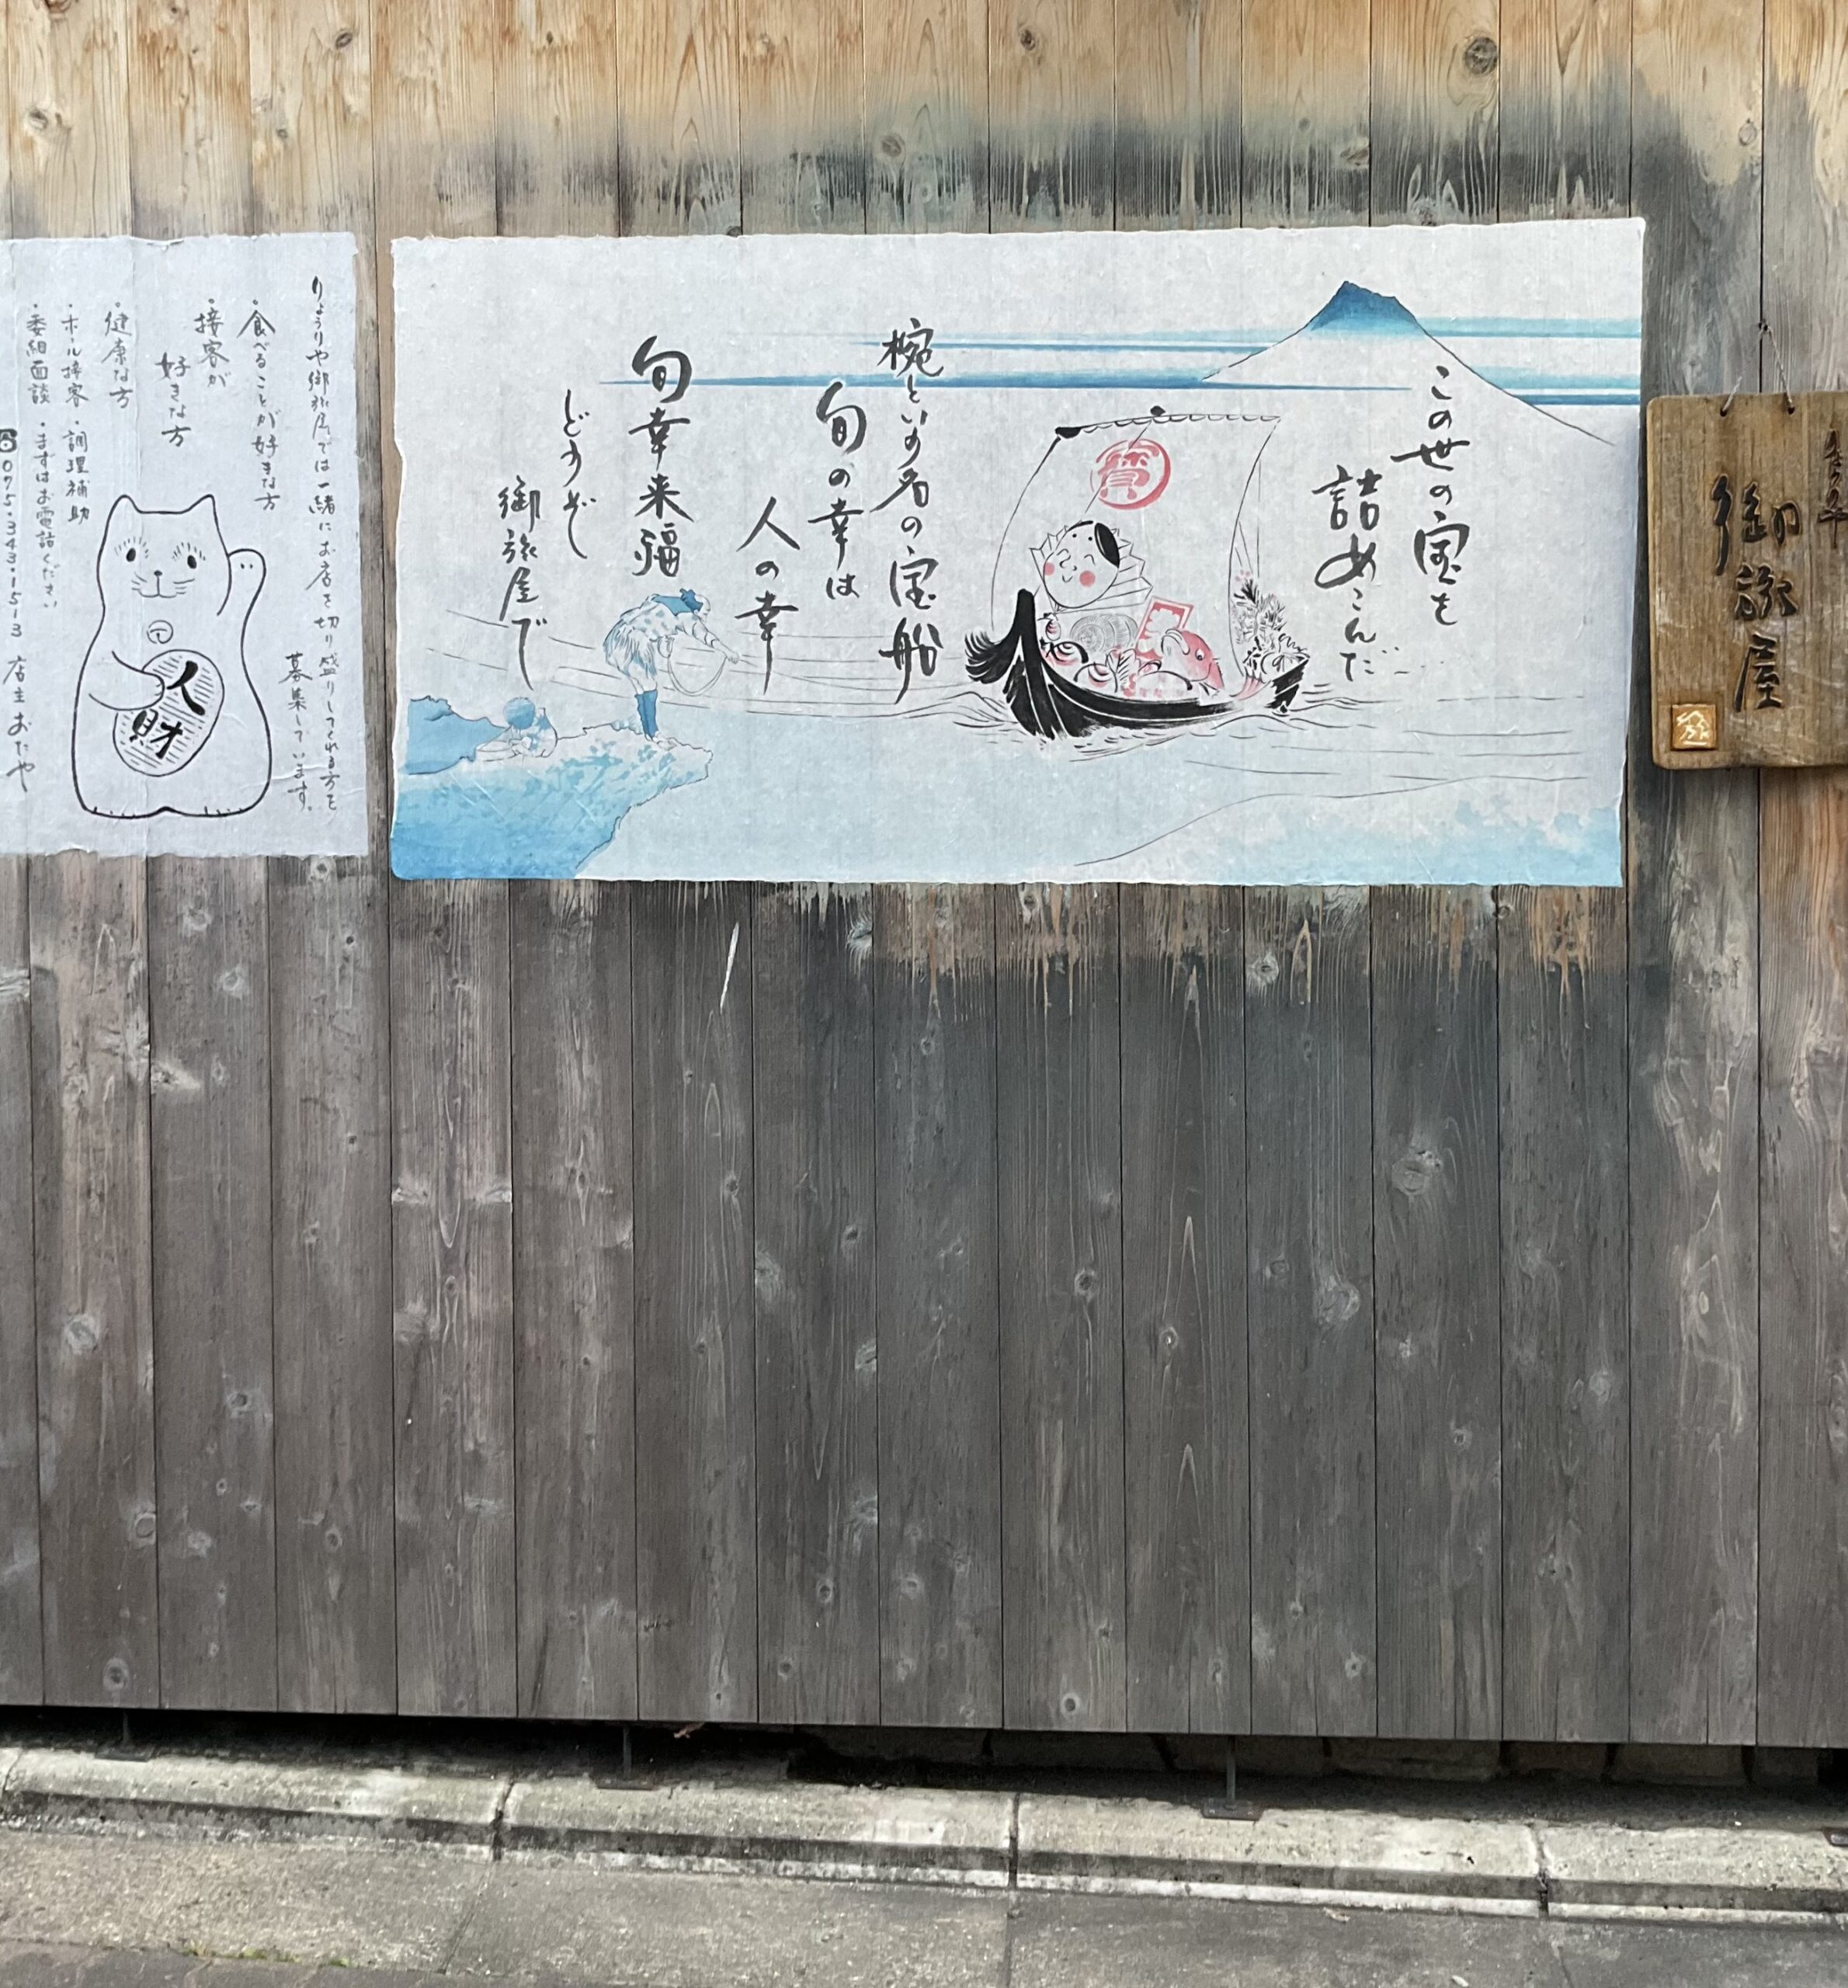 御旅屋
この世の宝を
詰めこんだ
寶
椀という名の宝船
旬の幸は
人の幸
旬幸来福
どうぞ
御旅屋で
りょうりや御旅屋では一緒にお店を切り盛りしてくれる方を
募集しています。
・食べることが好きな方
・接客が
好きな方
・健康な方
・ホール接客・調理補助
・委細面談・まずはお電話ください
075・343・1513 店主おたや
人財